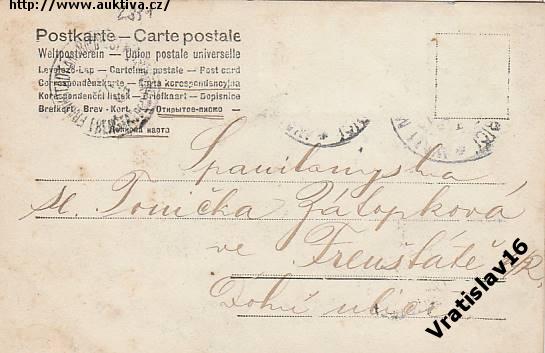 http://www.auktiva.cz/
Postkarte — Carte postale
Weltpostverein — Union postale universelle
Levelező-Lap — Cartolina postale — Post card
Correspondenzkarte — Karta korespondencyjna
Korespondenční lístek — Briefkaart — Dopisnice
Brefkort — Brev-Kort — Открытое-письмо
sl. Tonička Zátopková
ve Frenštátě
Dolní ulice
Vratislav16